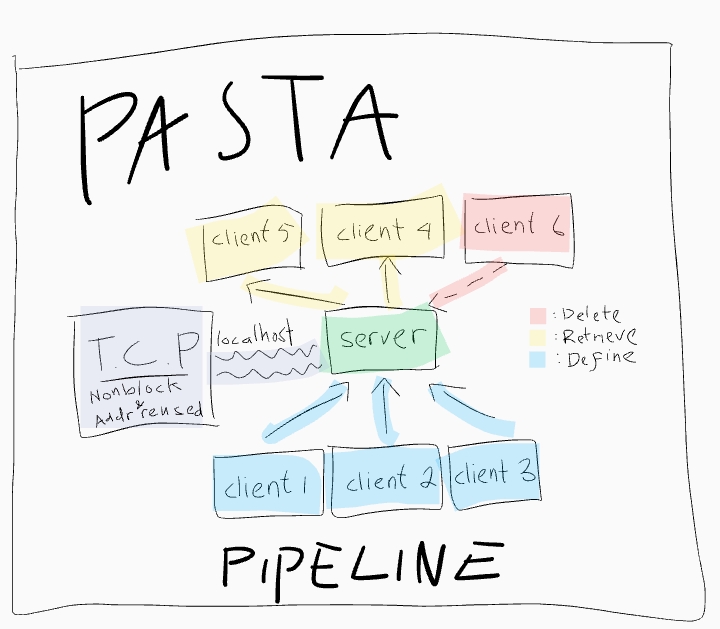 PASTA
client 5
client 4
client 6
T.C.P
Nonblock
& Addr reused
localhost
server
: Delete
: Retrieve
: Define
client 1
client 2
client 3
PIPELINE